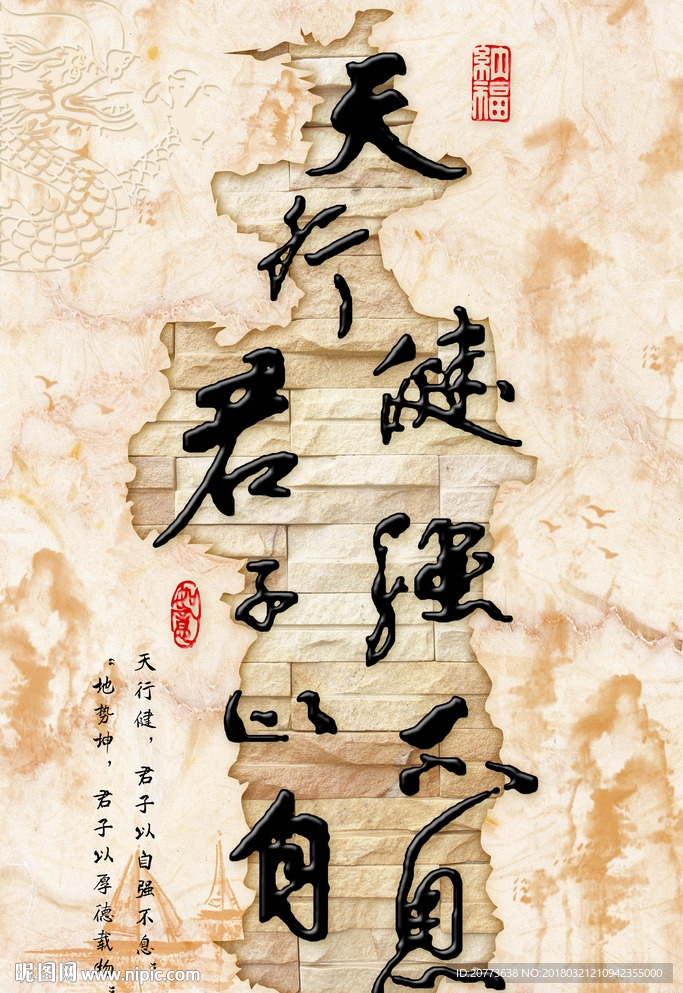 天行健
君子以自
强不息
納福
如意
天行健，君子以自强不息。
地势坤，君子以厚德载物。
昵图网 www.nipic.com
ID:20773638 NO:20180321210942355000